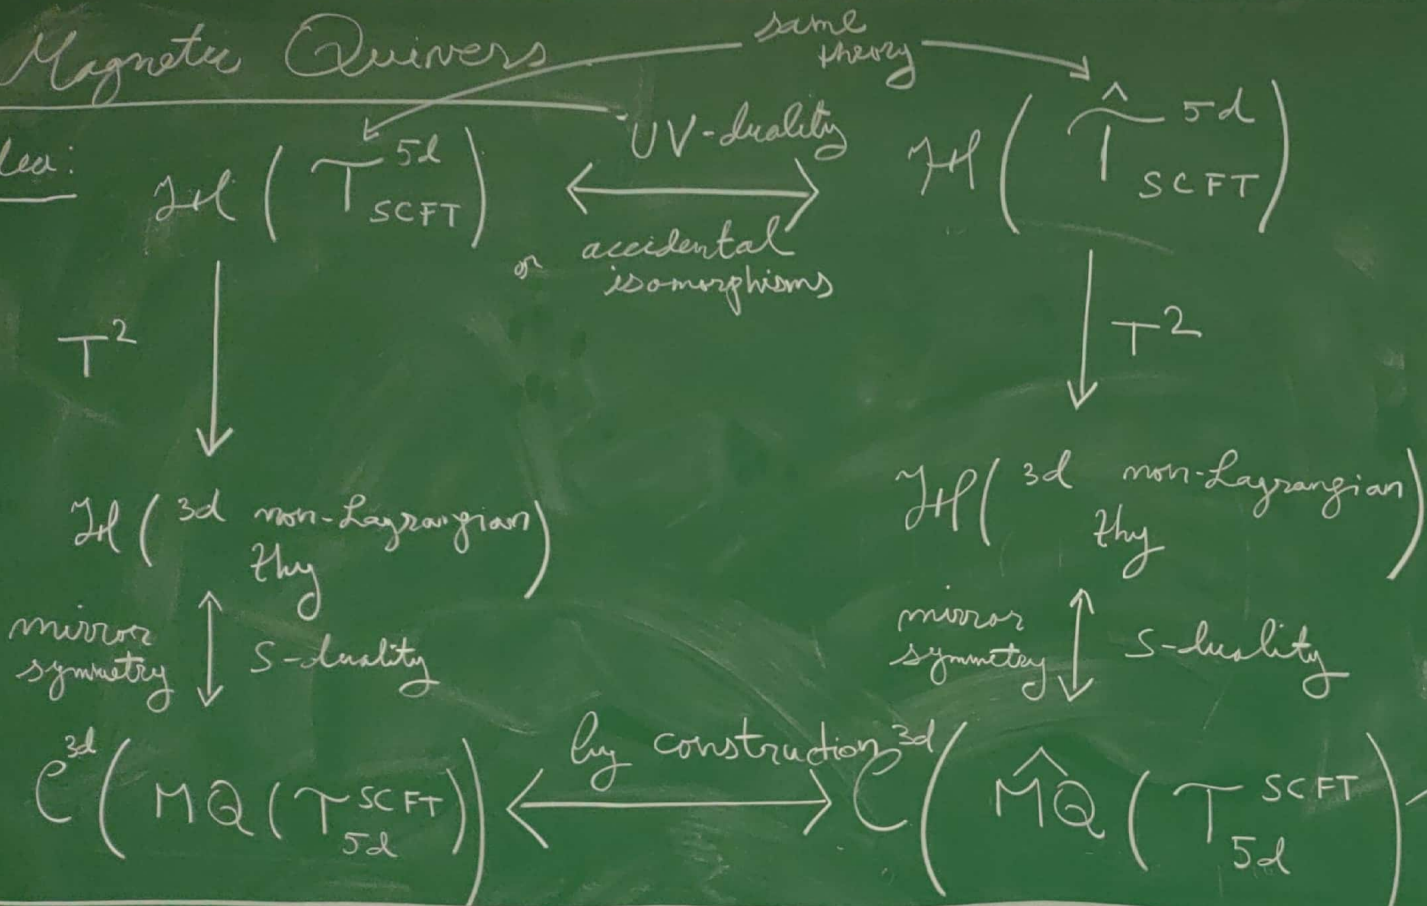 Magnetic Quivers
same
theory
dea:
H ( T^{5d}_{SCFT} )
UV-duality
⟷
or accidental
isomorphisms
H ( \hat{T}^{5d}_{SCFT} )
T²
T²
H ( 3d non-Lagrangian
thy )
H ( 3d non-Lagrangian
thy )
mirror
symmetry
S-duality
mirror
symmetry
S-duality
C^{3d} ( MQ ( T^{SCFT}_{5d} ) )
by construction
⟷
C^{3d} ( \hat{MQ} ( T^{SCFT}_{5d} )